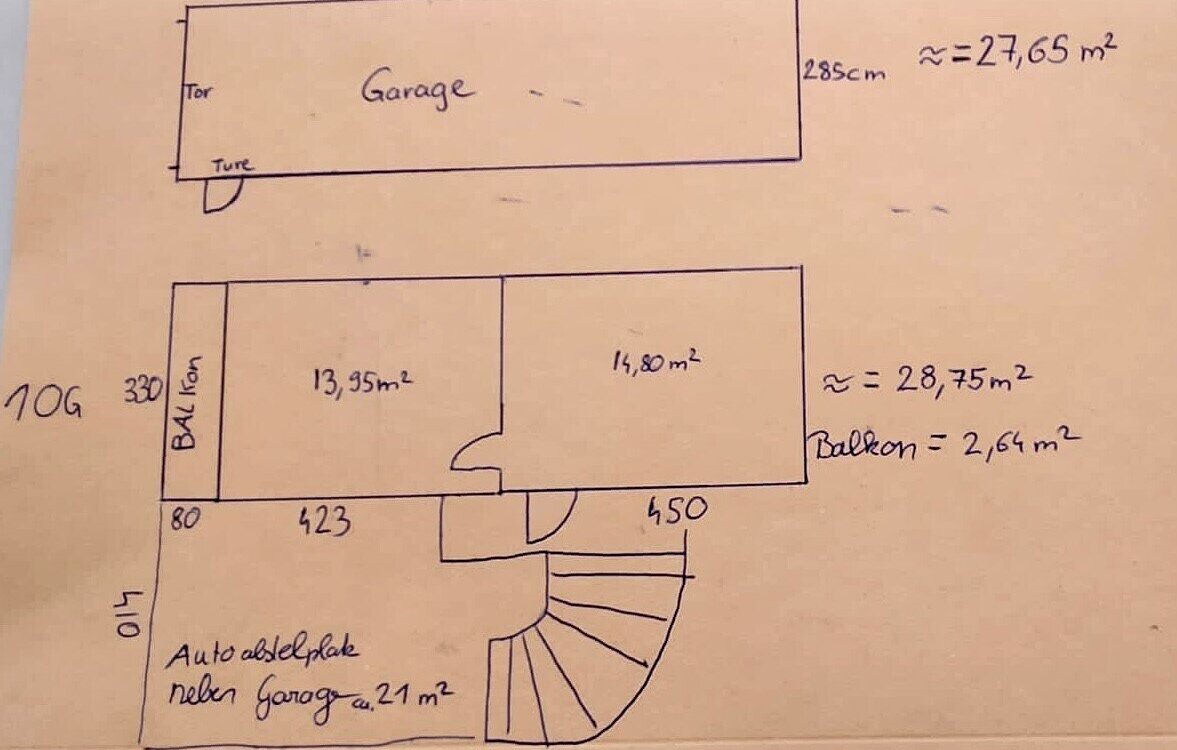 Garage
Tor
Ture
285cm
≈ = 27,65 m²
1OG
330
BALKon
13,95m²
14,80m²
≈ = 28,75m²
Balkon = 2,64m²
80
423
450
410
Autoabstelplatz
neben Garage ca. 21 m²